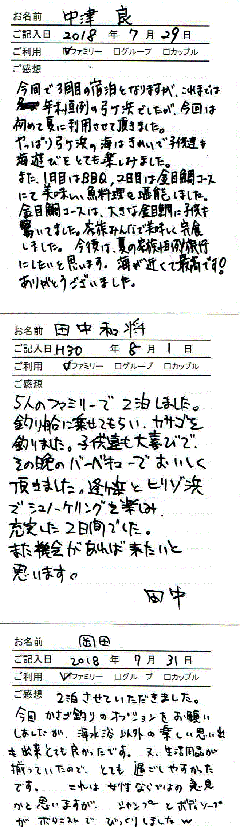 お名前 中津 良
ご記入日 2018 年 7 月 29 日
ご利用 ☑ファミリー □グループ □カップル
ご感想
今回で3回目の宿泊となりますが、これまでは
年末恒例の弓ヶ浜でしたが、今回は
初めて夏に利用させて頂きました。
やっぱり弓ヶ浜の海はきれいで子供達も
海遊びをとても楽しみました。
また、1日目はBBQ、2日目は金目鯛コース
にて美味しい魚料理を堪能しました。
金目鯛コースは、大きな金目鯛に子供も
驚いてました。家族みんなで美味しく完食
しました。今後は、夏の家族恒例旅行
にしたいと思います。海が近くて最高です!
ありがとうございました。
お名前 田中和将
ご記入日 H30 年 8 月 1 日
ご利用 ☑ファミリー □グループ □カップル
ご感想
5人のファミリーで2泊しました。
釣り船に乗せてもらい、カサゴを
釣りました。子供達も大喜びで、
その晩のバーベキューでおいしく
頂きました。逢ヶ浜とヒリゾ浜
でシュノーケリングを楽しみ
充実した2日間でした。
また機会があれば来たいと
思います。
田中
お名前 岡田
ご記入日 2018 年 7 月 31 日
ご利用 ☑ファミリー □グループ □カップル
ご感想 2泊させていただきました。
今回かさご釣りのオプションをお願い
しましたが、海水浴以外の楽しい思い出
も出来とても良かったです。又、生活用品が
揃っていたので、とても過ごしやすかった
です。これは女性ならではの発見
かと思いますが、シャンプーとボディソープ
が でびっくりしました